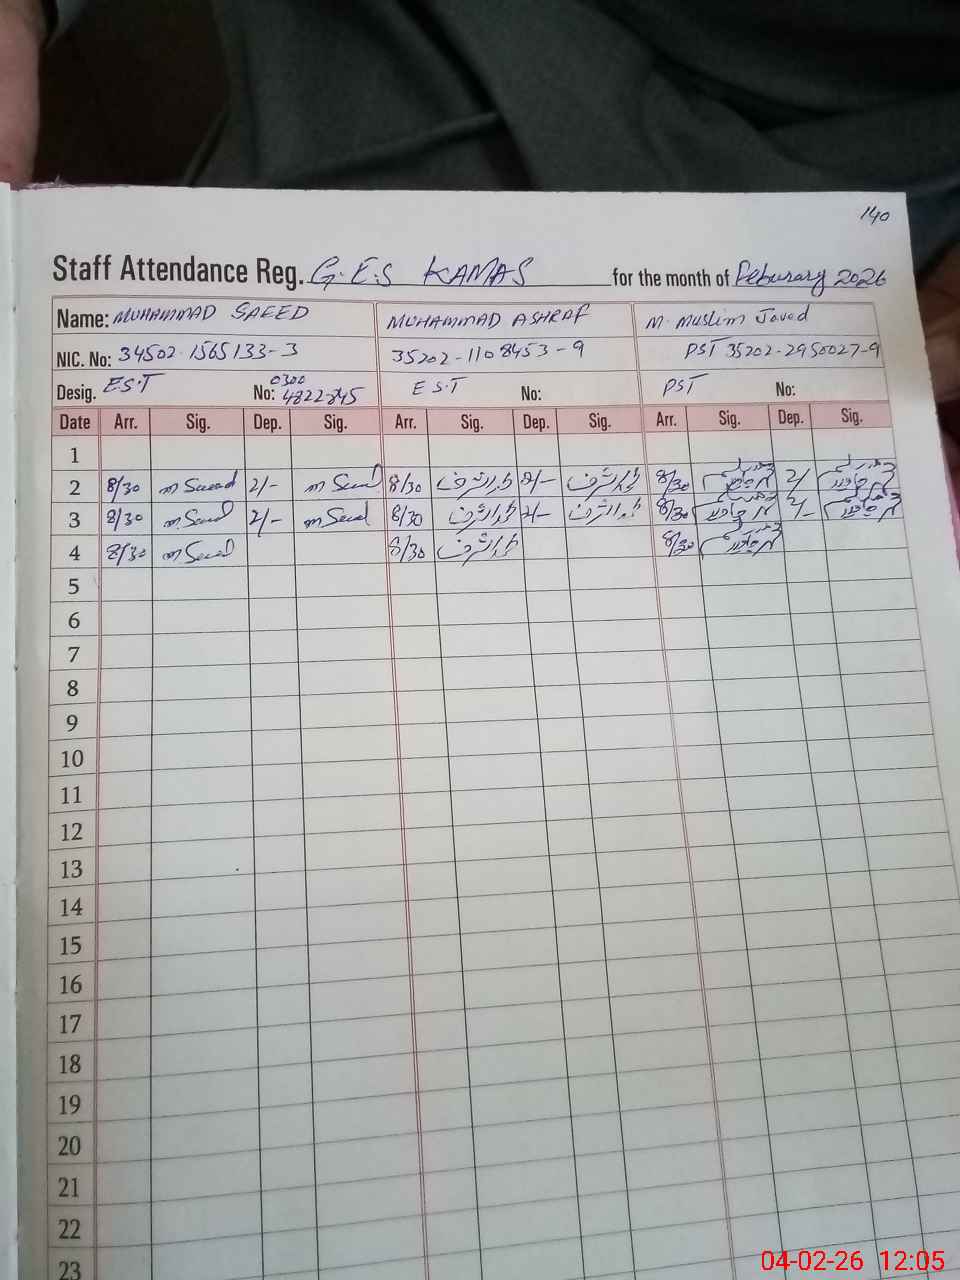 140
Staff Attendance Reg. G.E.S KAMAS for the month of Feburary 2026
Name: MUHAMMAD SAEED MUHAMMAD ASHRAF M. Muslim Javed
NIC. No: 34502-1565133-3 35202-1108453-9 PST 35202-2950027-9
Desig. E.S.T No: 0300 4822845 E S.T No: PST No:
Date Arr. Sig. Dep. Sig. Arr. Sig. Dep. Sig. Arr. Sig. Dep. Sig.
1
2 8/30 m Saeed 2/- m Saeed 8/30 محمد اشرف 2/- محمد اشرف 8/30 2/
3 8/30 m Saeed 2/- m Saeed 8/30 محمد اشرف 2/- محمد اشرف 8/30 2/-
4 8/30 m Saeed 8/30 محمد اشرف 8/30
5
6
7
8
9
10
11
12
13
14
15
16
17
18
19
20
21
22
23
04-02-26 12:05